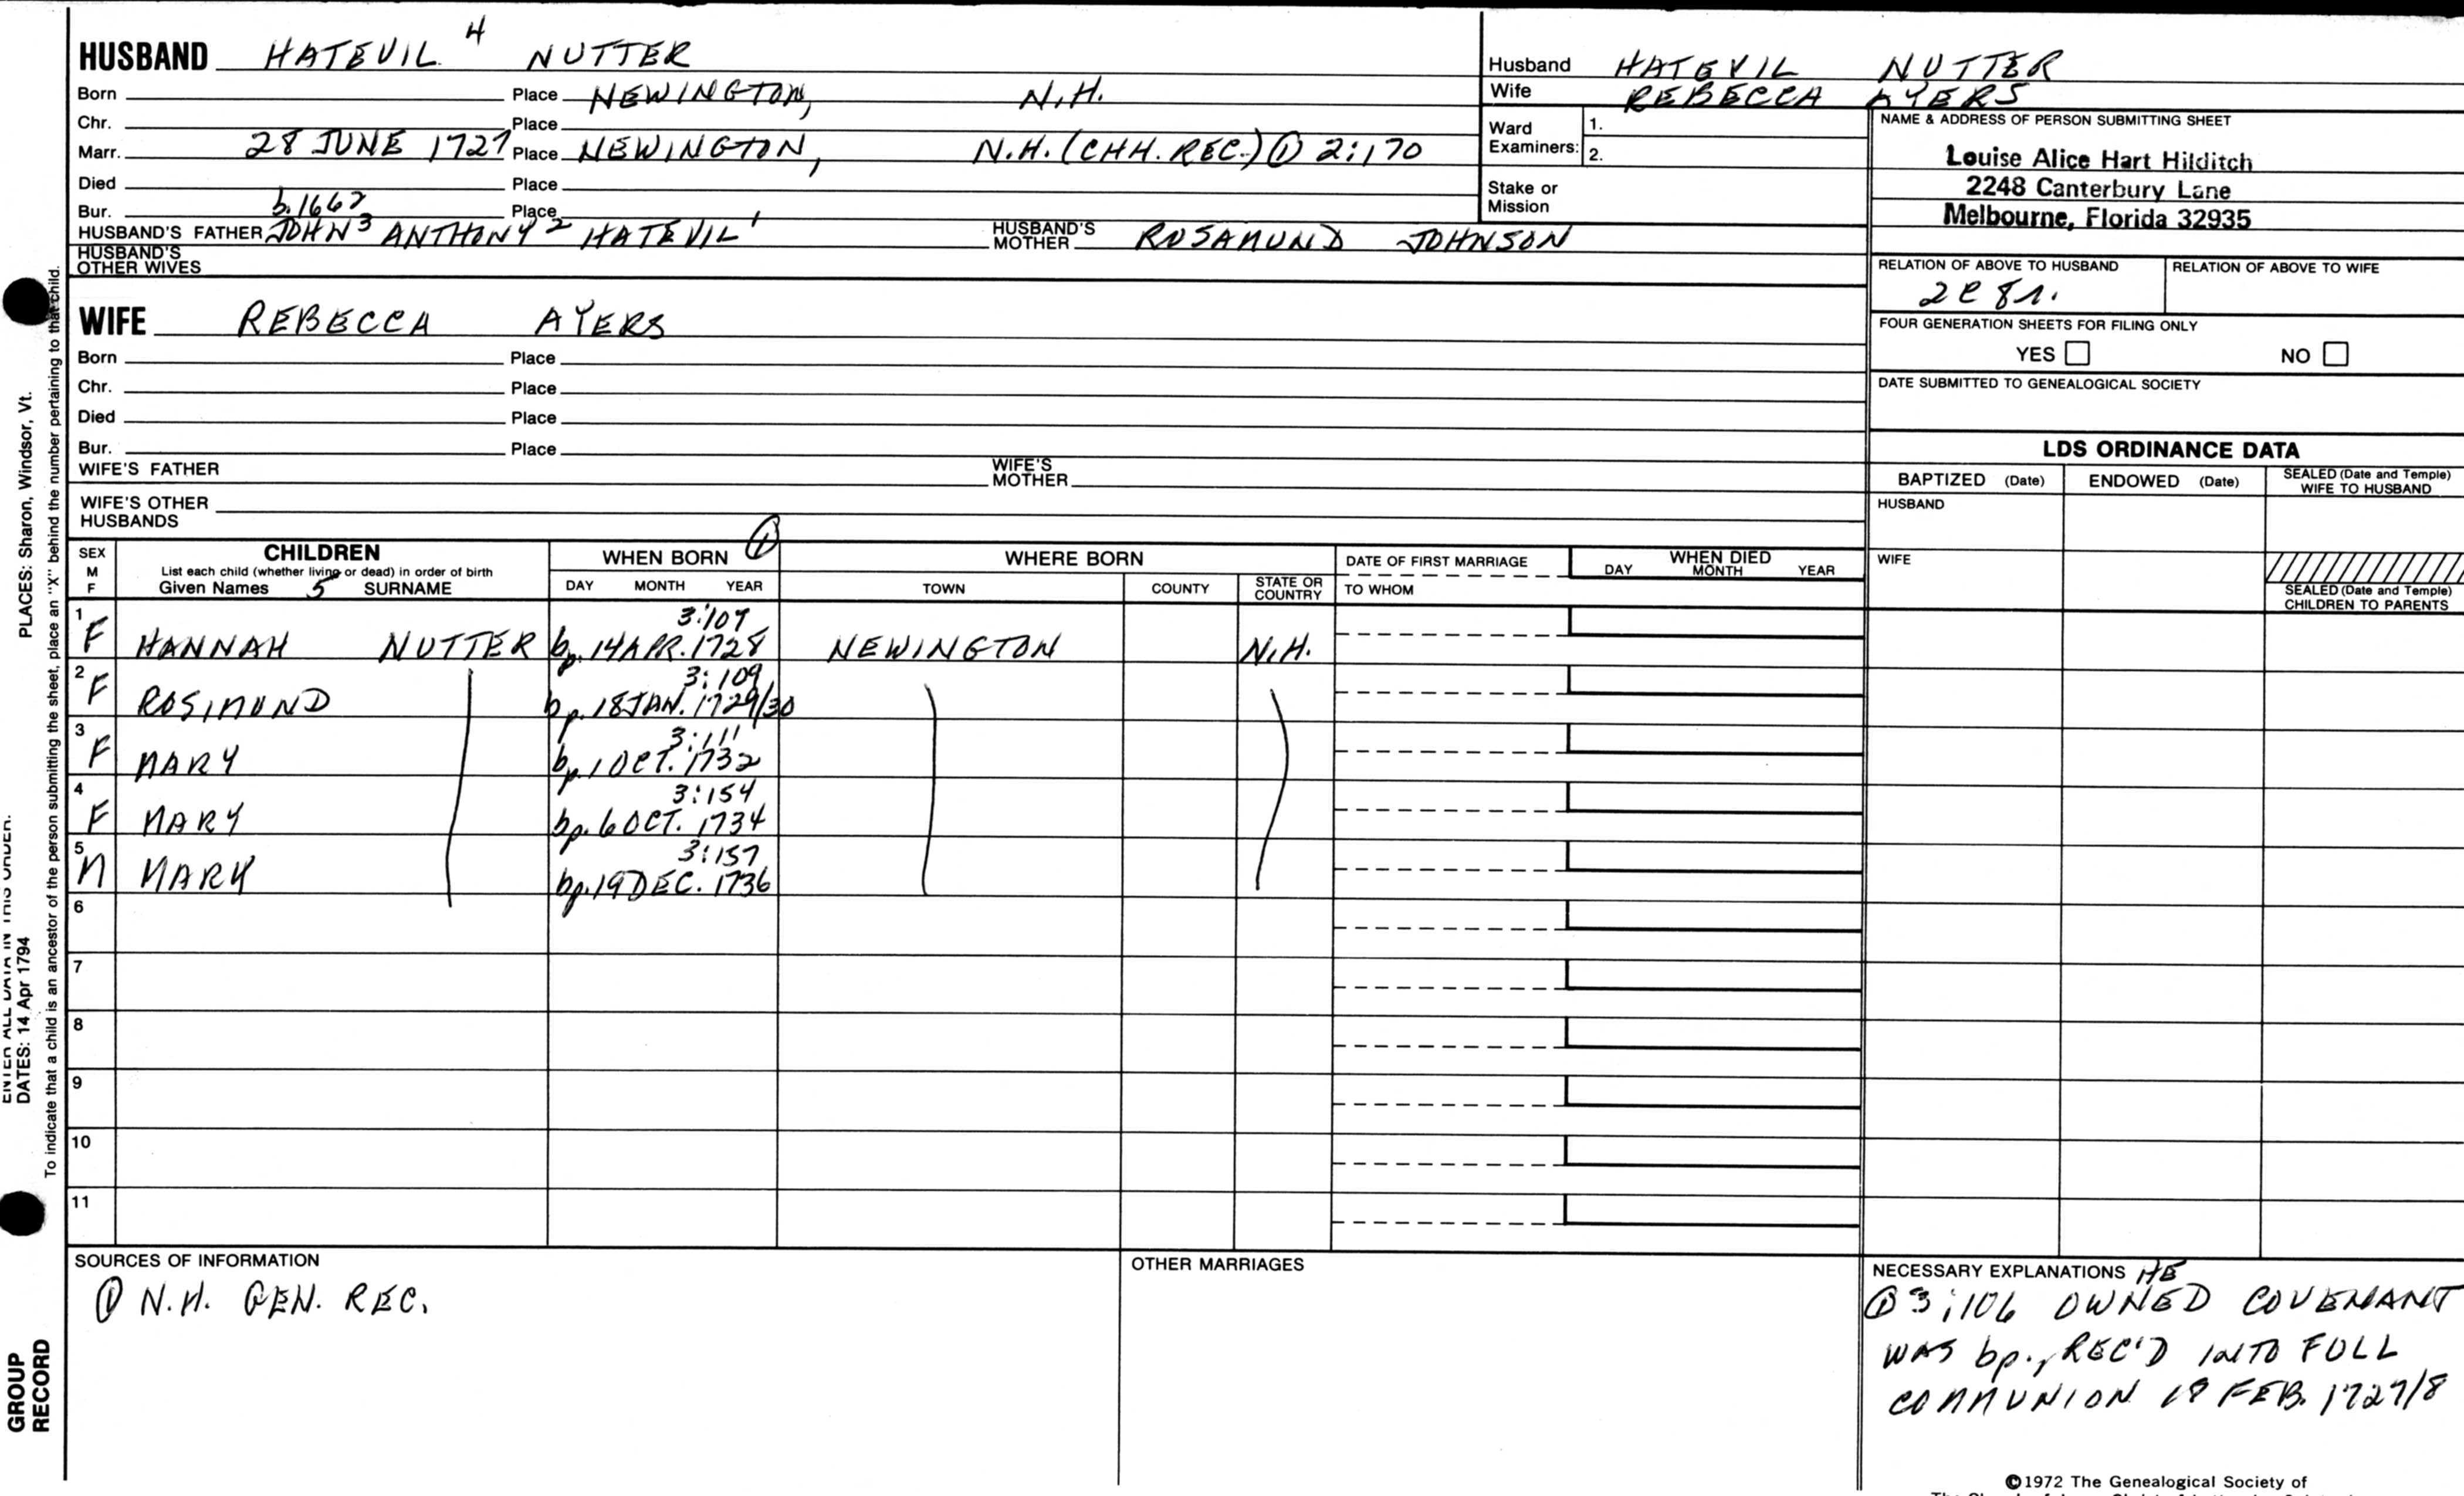 HUSBAND HATEVIL 4 NUTTER
Born Place NEWINGTON, N.H.
Chr. Place
Marr. 28 JUNE 1727 Place NEWINGTON, N.H. (CHH. REC.) ① 2:170
Died Place
Bur. Place
b. 1667
HUSBAND'S FATHER JOHN 3 ANTHONY 2 HATEVIL 1 HUSBAND'S MOTHER ROSAMUND JOHNSON
HUSBAND'S OTHER WIVES
WIFE REBECCA AYERS
Born Place
Chr. Place
Died Place
Bur. Place
WIFE'S FATHER WIFE'S MOTHER
WIFE'S OTHER HUSBANDS
Husband HATEVIL NUTTER
Wife REBECCA AYERS
Ward Examiners: 1.
2.
Stake or Mission
NAME & ADDRESS OF PERSON SUBMITTING SHEET
Louise Alice Hart Hilditch
2248 Canterbury Lane
Melbourne, Florida 32935
RELATION OF ABOVE TO HUSBAND RELATION OF ABOVE TO WIFE
FOUR GENERATION SHEETS FOR FILING ONLY
YES NO
DATE SUBMITTED TO GENEALOGICAL SOCIETY
LDS ORDINANCE DATA
BAPTIZED (Date) ENDOWED (Date) SEALED (Date and Temple) WIFE TO HUSBAND
HUSBAND
WIFE
SEALED (Date and Temple) CHILDREN TO PARENTS
SEX M F CHILDREN WHEN BORN ① WHERE BORN DATE OF FIRST MARRIAGE WHEN DIED
List each child (whether living or dead) in order of birth
Given Names 5 SURNAME DAY MONTH YEAR TOWN COUNTY STATE OR COUNTRY TO WHOM DAY MONTH YEAR
3:107
1 F HANNAH NUTTER bp. 14 APR. 1728 NEWINGTON N.H.
3:109
2 F ROSIMUND bp. 18 JAN. 1729/30
3:111
3 F MARY bp. 1 OCT. 1732
3:154
4 F MARY bp. 6 OCT. 1734
3:157
5 M MARK bp. 19 DEC. 1736
6
7
8
9
10
11
SOURCES OF INFORMATION
① N.H. GEN. REC.
OTHER MARRIAGES
NECESSARY EXPLANATIONS HE
① 3:106 OWNED COVENANT
WAS bp., REC'D INTO FULL
COMMUNION 18 FEB. 1727/8
©1972 The Genealogical Society of
PLACES: Sharon, Windsor, Vt.
ENTER ALL DATA IN THIS ORDER:
DATES: 14 Apr 1794
To indicate that a child is an ancestor of the person submitting the sheet, place an "X" behind the number pertaining to that child.
GROUP
RECORD